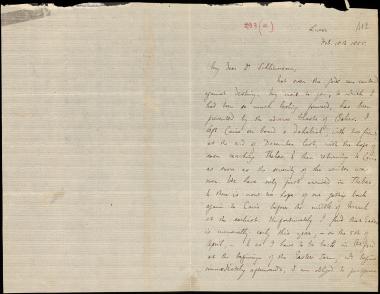 293 (a)
Luxor
Feb. 10th 1885.
My Dear Dr Schliemann,
Not even the gods can contend
against destiny. My visit to you, to which I
had been so much looking forward, has been
prevented by the adverse of . I
left Cairo on board a dahabiah, with two friends
at the end of December last, with the hope of
even reaching Thebes & then returning to Cairo
as soon as the severity of the winter was
over. We have only just arrived in Thebes
& there is now no hope of our getting back
again to Cairo before the middle of March
at the earliest. Unfortunately I find that Easter
is unusually early this year, – on the 5th of
April, – & as I have to be back in Oxford
at the beginning of the Easter Term, wh. begins
immediately afterwards, I am obliged to